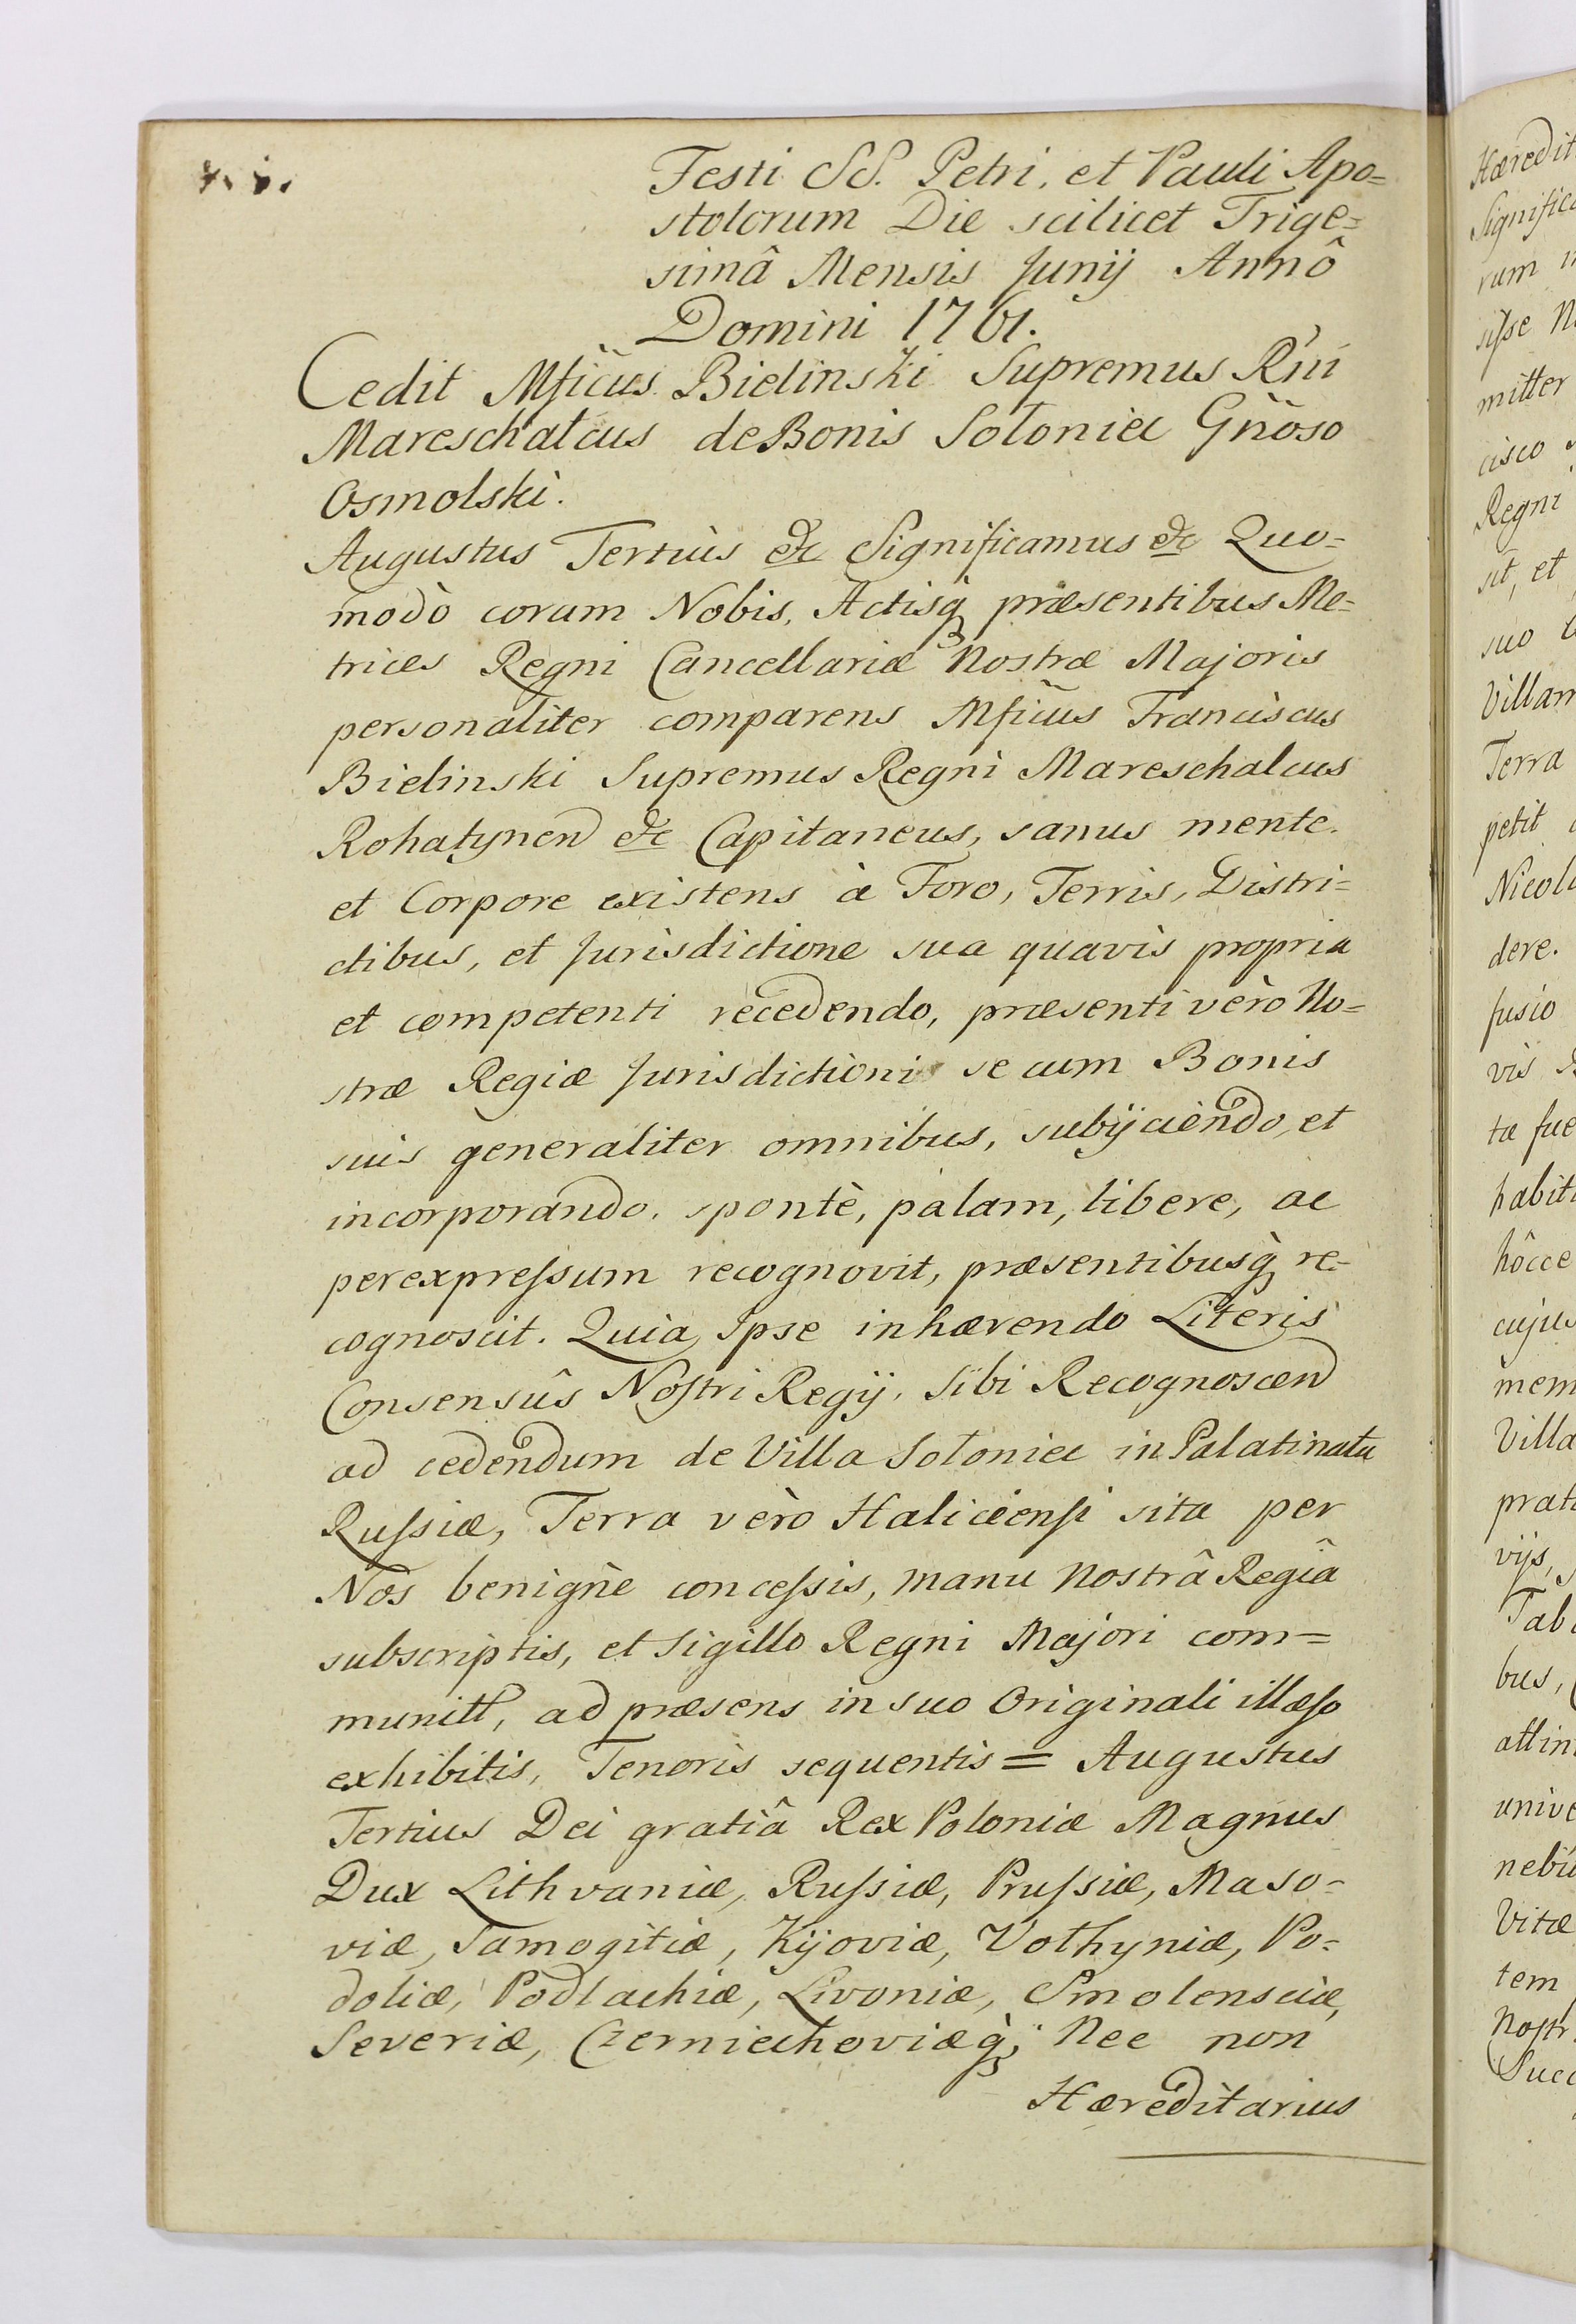 Festi SS. Petri, et Pauli Apo=
stolorum Die scilicet Trige=
simâ Mensis Junij Annô
Domini 1761.
Cedit Mficus Bielinski Supremus Rni
Mareschalcus de Bonis Sołoniec Gnoso
Osmolski.
Augustus Tertius &c Significamus &c Quo=
modò coram Nobis, Actisq; præsentibus Me=
trices Regni Cancellariæ Nostræ Majoris
personaliter comparens Mficus Franciscus
Bielinski Supremus Regni Mareschalcus
Rohatynen &c Capitaneus, sanus mente
et Corpore existens à Foro, Terris, Distri=
ctibus, et Jurisdictione sua quavis propria
et competenti recedendo, præsenti vèro No=
stræ Regiæ Jurisdictioni se cum Bonis
suis generaliter omnibus, subijciendo, et
incorporando, spontè, palam, libere, ac
per expreſsum recognovit, præsentibusq; re=
cognoscit. Quia Ipse inhærendo Literis
Consensûs Noſtri Regij, sibi Recognoscen
ad cedendum de Villa Sołoniec in Palatinatu
Ruſsiæ, Terra vèro Haliciensi sita per
Nos benignè conceſsis, manu Nostrâ Regiâ
subscriptis, et Sigillo Regni Majori com=
munitt, ad præsens in suo Originali illæſo
exhibitis, Tenoris sequentis = Augustus
Tertius Dei gratiâ Rex Poloniæ Magnus
Dux Lithvaniæ, Ruſsiæ, Pruſsiæ, Maso=
viæ, Samogitiæ, Kijoviæ, Vołhyniæ, Po=
doliæ, Podlachiæ, Livoniæ, Smolensciæ,
Severiæ, Czerniechoviæq; Nec non
Hæreditarius
Hæredit
Significa
rum
siſse
mitter
cisco
Regni
sit, et
suo
Villam
Terra
petit
Nicol
dere.
fusio
vis
tæ fue
habit
hôcce
cujus
mem
Villa
prat
vijs,
Tab
bus,
attin
unive
nebu
Vitæ
tem
Noſtr
Succ